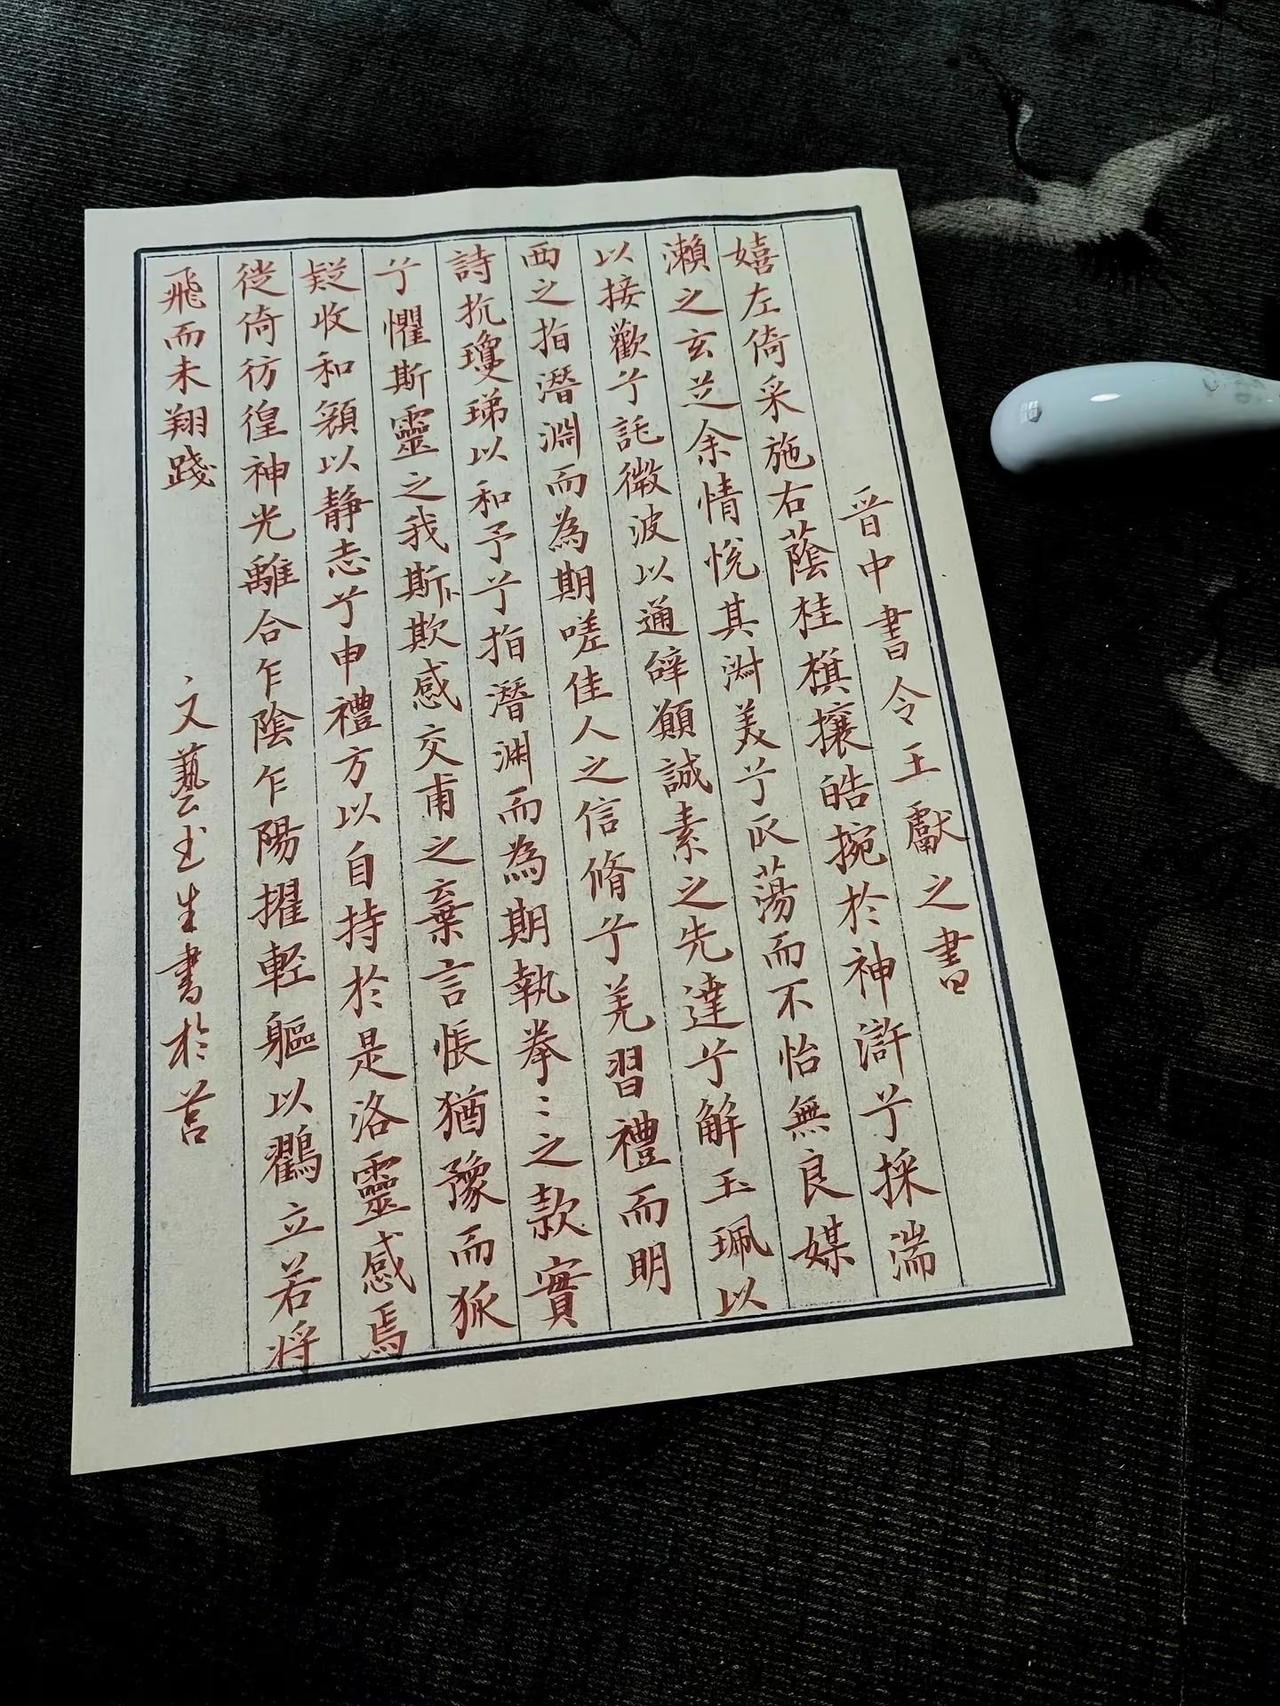 晉中書令王獻之書
嬉左倚采旄右蔭桂旗攘皓捥於神滸兮採湍
瀨之玄芝余情悅其淑美兮心蕩而不怡無良媒
以接歡兮託微波以通辭願誠素之先達兮解玉珮以
西之指潛淵而為期嗟佳人之信脩兮羌習禮而明
詩抗瓊珶以和予兮指潛淵而為期執拳〻之款實
兮懼斯靈之我斯欺感交甫之棄言悵猶豫而狐
疑收和顏以靜志兮申禮方以自持於是洛靈感焉
徙倚彷徨神光離合乍陰乍陽擢輕軀以鸖立若將
飛而未翔踐
文藝書生書於莒